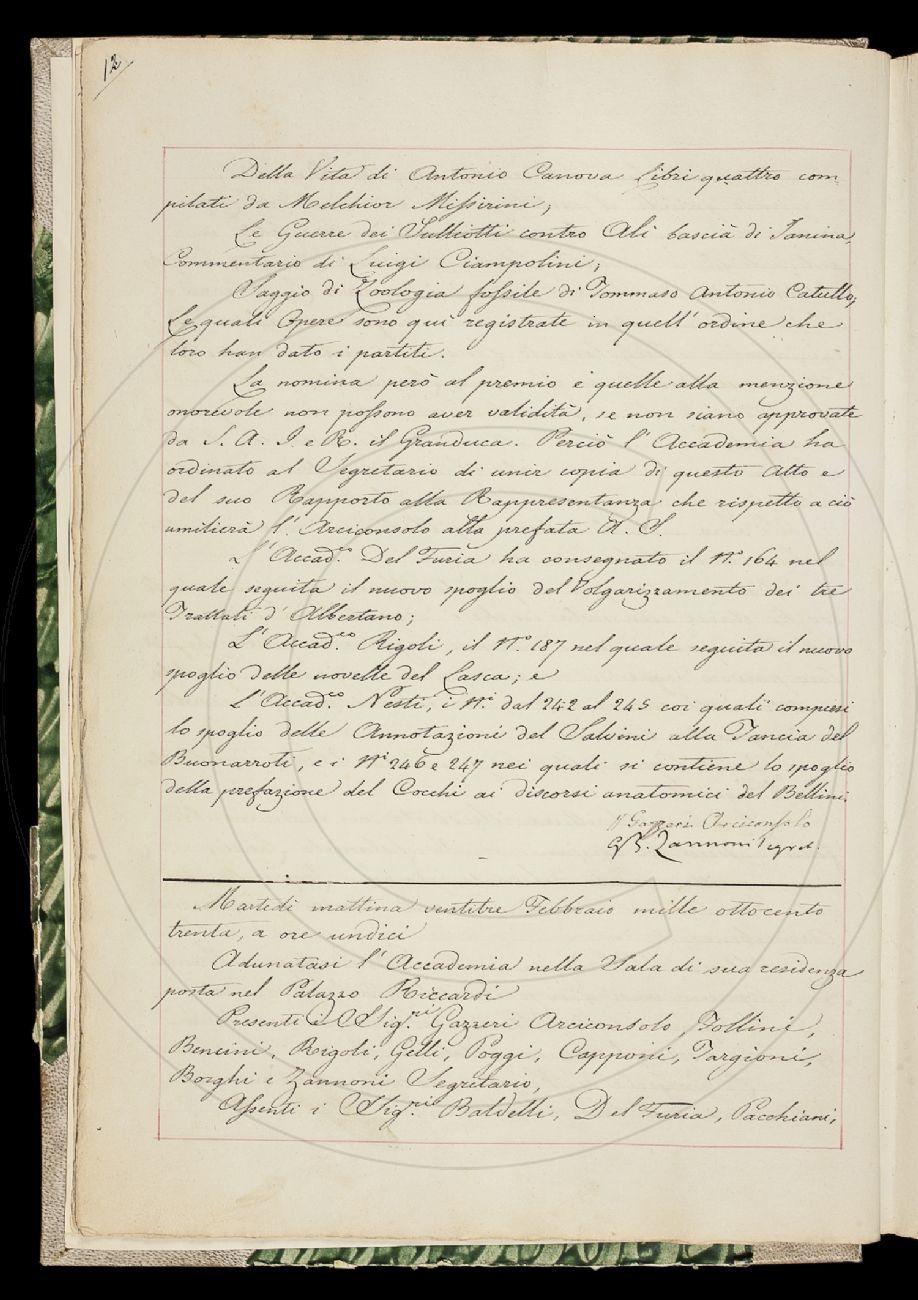 12
Della Vita di Antonio Canova libri quattro com
pilati da Melchior Missirini;
Le Guerre dei Sulliotti contro Alì bascià di Janina,
Commentario di Luigi Ciampolini;
Saggio di Zoologia fossile di Tommaso Antonio Catullo;
Le quali Opere sono qui registrate in quell'ordine che
loro han dato i partiti.
La nomina però al premio e quelle alla menzione
onorevole non possono aver validità, se non siano approvate
da S. A. I. e R. il Granduca. Perciò l'Accademia ha
ordinato al Segretario di unir copia di questo Atto e
del suo Rapporto alla Rappresentanza che rispetto a ciò
umilierà l'Arciconsolo alla prefata A. S.
L'Accad.co Del Furia ha consegnato il N.o 164 nel
quale seguita il nuovo spoglio del Volgarizzamento dei tre
Trattati d'Albertano;
L'Accad.co Rigoli, il N.o 187 nel quale seguita il nuovo
spoglio delle novelle del Lasca; e
L'Accad.co Nesti, i N.i dal 242 al 245 coi quali compiesi
lo spoglio delle Annotazioni del Salvini alla Tancia del
Buonarroti, e i N.i 246 e 247 nei quali si contiene lo spoglio
della prefazione del Cocchi ai discorsi anatomici del Bellini.
Gazzeri Arciconsolo
G.B. Zannoni Segret.
Martedì mattina ventitre Febbraio mille ottocento
trenta, a ore undici
Adunatasi l'Accademia nella Sala di sua residenza
posta nel Palazzo Riccardi
Presenti i Sig.ri Gazzeri Arciconsolo, Follini,
Bencini, Rigoli, Gelli, Poggi, Capponi, Targioni,
Borghi e Zannoni Segretario,
Assenti i Sig.ri Baldelli, Del Furia, Pacchiani,